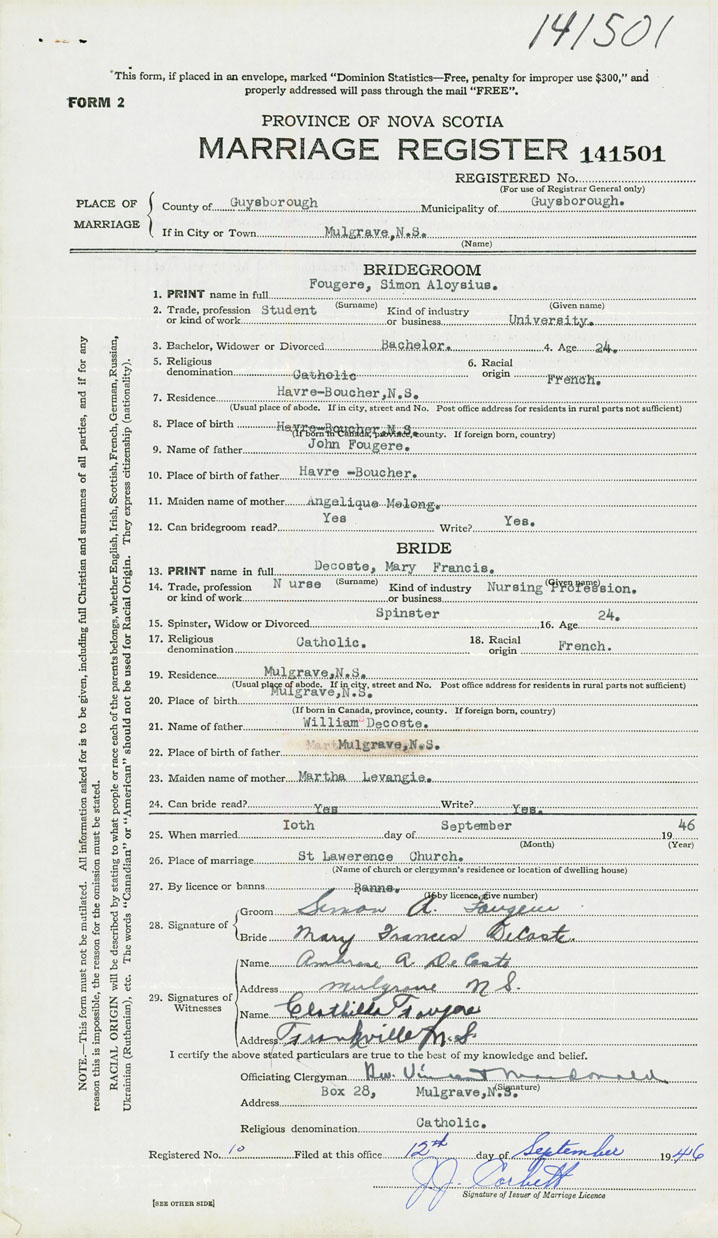 141501
"This form, if placed in an envelope, marked "Dominion Statistics—Free, penalty for improper use $300," and
properly addressed will pass through the mail "FREE".
FORM 2
PROVINCE OF NOVA SCOTIA
MARRIAGE REGISTER 141501
REGISTERED No.
(For use of Registrar General only)
PLACE OF MARRIAGE
County of Guysborough Municipality of Guysborough.
If in City or Town Mulgrave,N.S.
(Name)
BRIDEGROOM
1. PRINT name in full Fougere, Simon Aloysius.
(Surname) (Given name)
2. Trade, profession or kind of work Student Kind of industry or business University.
3. Bachelor, Widower or Divorced Bachelor. 4. Age 24.
5. Religious denomination Catholic 6. Racial origin French.
7. Residence Havre-Boucher,N.S.
(Usual place of abode. If in city, street and No. Post office address for residents in rural parts not sufficient)
8. Place of birth Havre-Boucher,N.S.
(If born in Canada, province, county. If foreign born, country)
9. Name of father John Fougere.
10. Place of birth of father Havre -Boucher.
11. Maiden name of mother Angelique Melong.
12. Can bridegroom read? Yes Write? Yes.
BRIDE
13. PRINT name in full Decoste, Mary Francis.
(Surname) (Given name)
14. Trade, profession or kind of work N urse Kind of industry or business Nursing Profession.
15. Spinster, Widow or Divorced Spinster 16. Age 24.
17. Religious denomination Catholic. 18. Racial origin French.
19. Residence Mulgrave,N.S.
(Usual place of abode. If in city, street and No. Post office address for residents in rural parts not sufficient)
20. Place of birth Mulgrave,N.S.
(If born in Canada, province, county. If foreign born, country)
21. Name of father William Decoste.
22. Place of birth of father Mulgrave,N.S.
23. Maiden name of mother Martha Levangie.
24. Can bride read? Yes Write? Yes.
25. When married Ioth day of September 19 46
(Month) (Year)
26. Place of marriage St Lawerence Church.
(Name of church or clergyman's residence or location of dwelling house)
27. By licence or banns Banns.
(If by licence, give number)
28. Signature of
Groom Simon A. Fougere
Bride Mary Frances DeCoste.
29. Signatures of Witnesses
Name Ambrose A DeCoste
Address Mulgrave N S.
Name Clothilda Fougere
Address Frankville N.S.
I certify the above stated particulars are true to the best of my knowledge and belief.
Officiating Clergyman Rev. Vincent MacDonald
(Signature)
Address Box 28, Mulgrave,N.S.
Religious denomination Catholic.
Registered No. 10 Filed at this office 12th day of September 1946
J.J. Corbett
Signature of Issuer of Marriage Licence
[SEE OTHER SIDE]
NOTE.—This form must not be mutilated. All information asked for is to be given, including full Christian and surnames of all parties, and if for any
reason this is impossible, the reason for the omission must be stated.
RACIAL ORIGIN will be described by stating to what people or race each of the parents belongs, whether English, Irish, Scottish, French, German, Russian,
Ukrainian (Ruthenian), etc. The words "Canadian" or "American" should not be used for Racial Origin. They express citizenship (nationality).